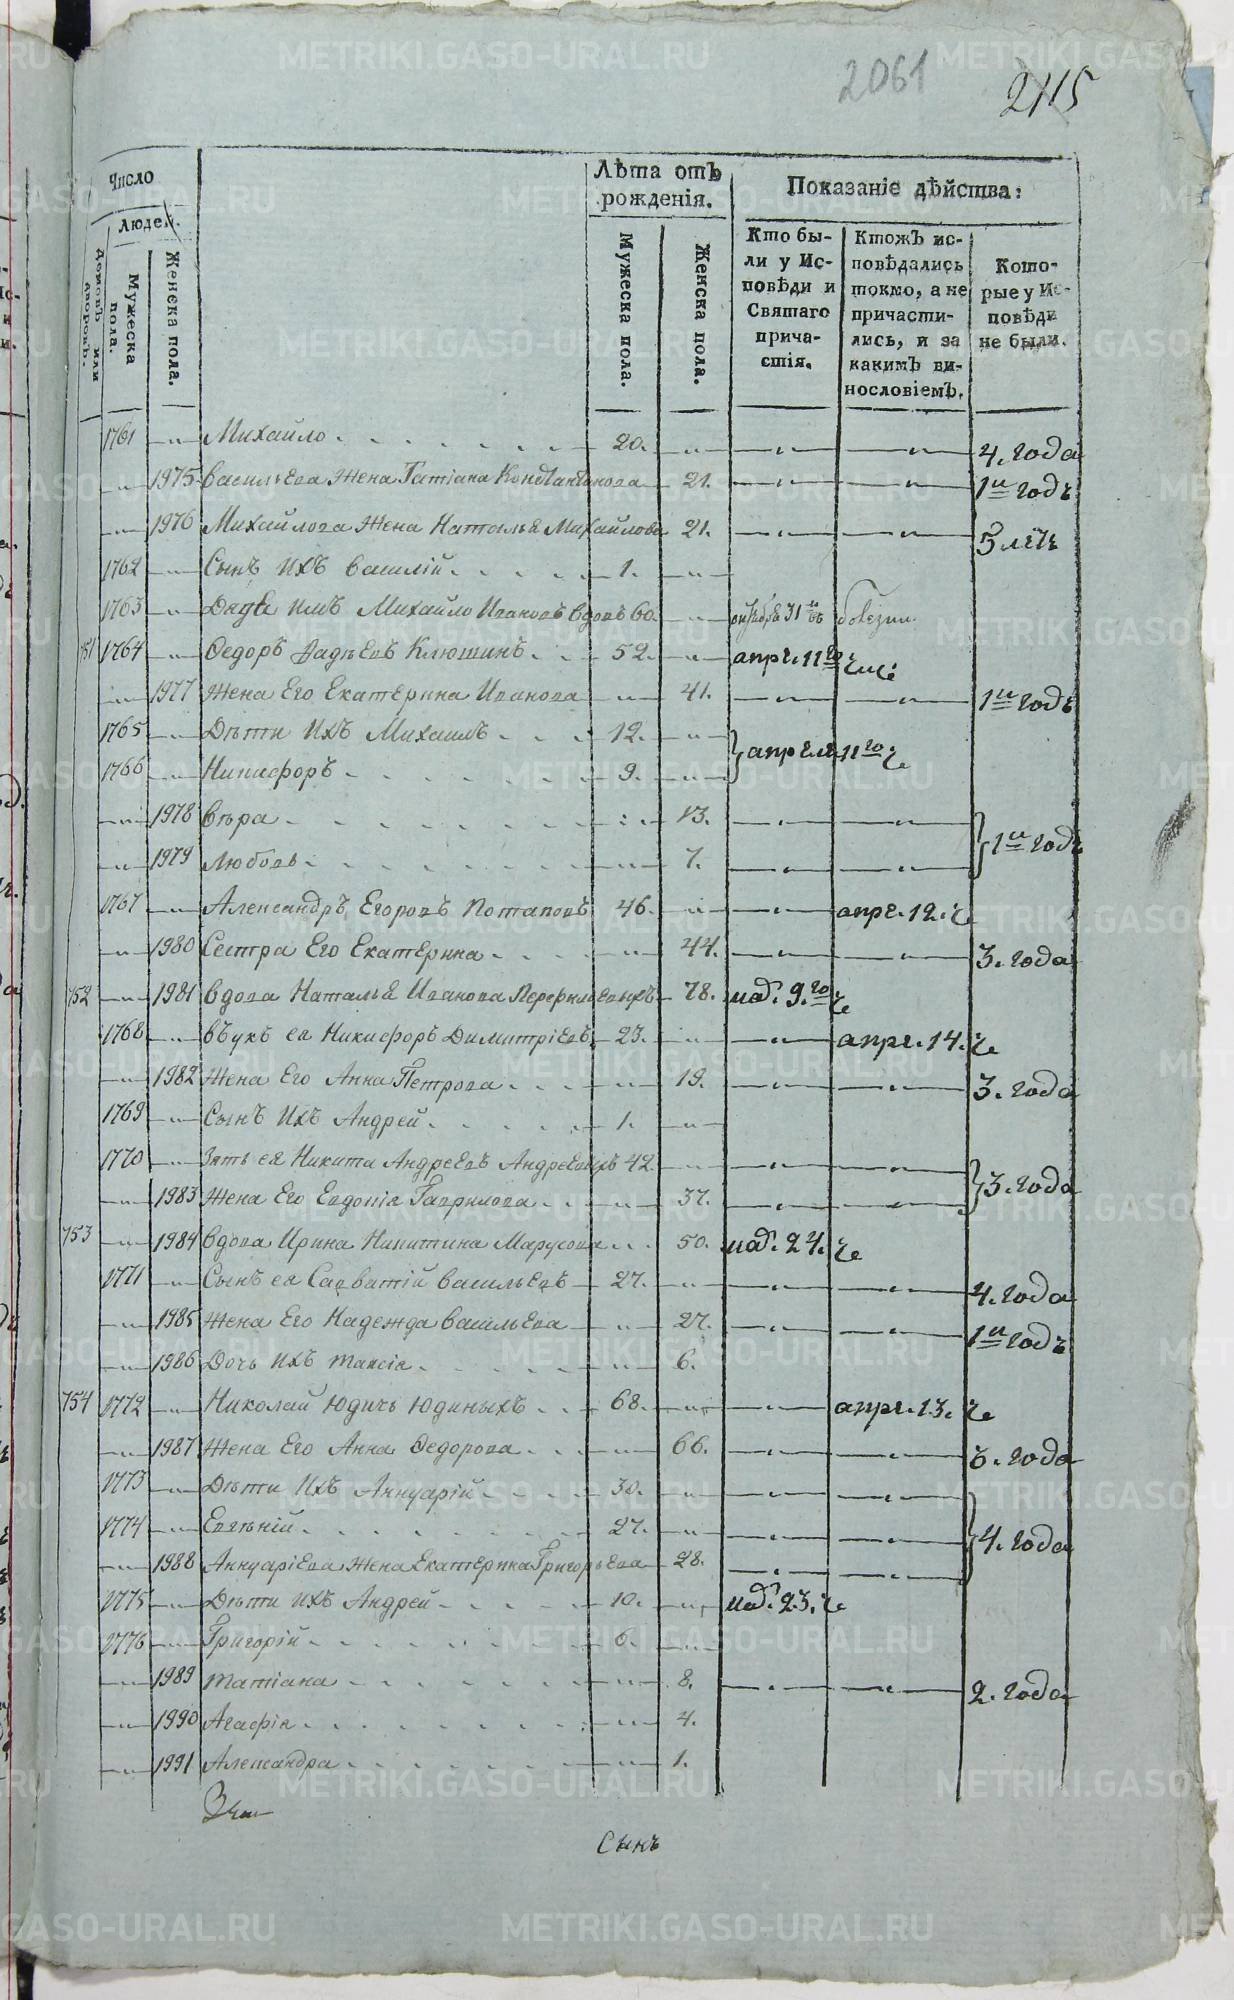 2061
2115
Число
Людей.
Домовъ или дворовъ.
Мужеска пола.
Женска пола.
Лѣта отъ рожденія.
Мужеска пола.
Женска пола.
Показаніе дѣйства:
Кто бы-
ли у Ис-
повѣди и
Святаго
прича-
стія.
Ктожъ ис-
повѣдались
токмо, а не
причасти-
лись, и за
какимъ ви-
нословіемъ.
Кото-
рые у Ис-
повѣди
не были.
1761 Михайло 20. 4. года
1975 Васильева Жена Татіана Константинова 21. 1й годъ
1976 Михайлова Жена Наталья Михайлова 21. 5 летъ
1762 Сынъ Ихъ Василій 1.
1763 Дядя имъ Михайло Ивановъ вдовъ 60. 31 болезни
751 1764 Федоръ Клюшинъ 52. апре. 11го
1977 Жена Его Екатерина Иванова 41. 1й годъ
1765 Дѣти Ихъ Михаилъ 12.
апреля 11го
1766 Никифоръ 9.
1978 Вѣра 13.
1й годъ
1979 Любовь 7.
1767 Александръ Егоровъ Потаповъ 46. апре. 12.
1980 Сестра Его Екатерина 44. 3. года
752 1981 Вдова Наталья Иванова 78. маѧ. 9.го
1768 Внукъ ея Никифоръ Димитріевъ 23. апре. 14.
1982 Жена Его Анна Петрова 19. 3. года
1769 Сынъ Ихъ Андрей 1.
1770 Зять ея Никита Андреевъ Андреевыхъ 42
3. года
1983 Жена Его Евдокія Гаврилова 37.
753 1984 Вдова Ирина Никитина Марусова 50. 24.
1771 Сынъ ея Савватій Васильевъ 27. 4. года
1985 Жена Его Надежда Васильева 27. 1й годъ
1986 Дочь Ихъ Таисія 6.
754 1772 Николай Юдичь Юдиныхъ 68. апре. 13.
1987 Жена Его Анна Федорова 66. года
1773 Дѣти Ихъ Аннуарій 30.
1774 Евгѣній 27.
4. года
1988 Аннуаріева Жена Екатерина Григорьева 28.
1775 Дѣти Ихъ Андрей 10. 23.
1776 Григорій 6.
1989 Татіана 8. 2. года
1990 Агафія 4.
1991 Александра 1.
Сынъ